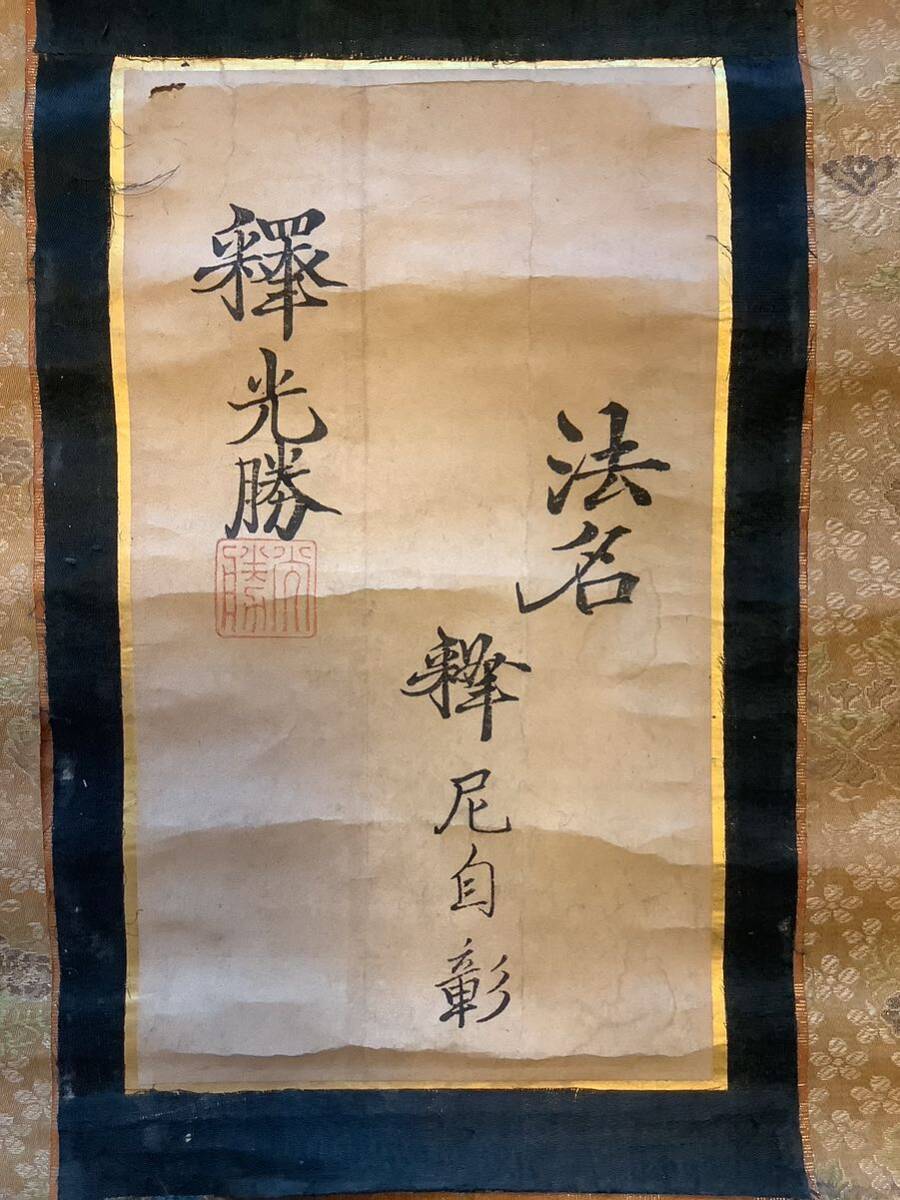 法名
釋尼自彰
釋光勝
光勝